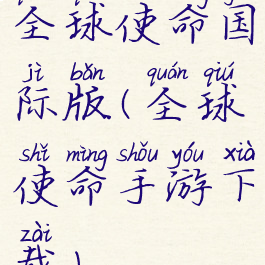 全球使命国
jì bǎn quán qiú
际版(全球
shǐ mìng shǒu yóu xià
使命手游下
zài
载)